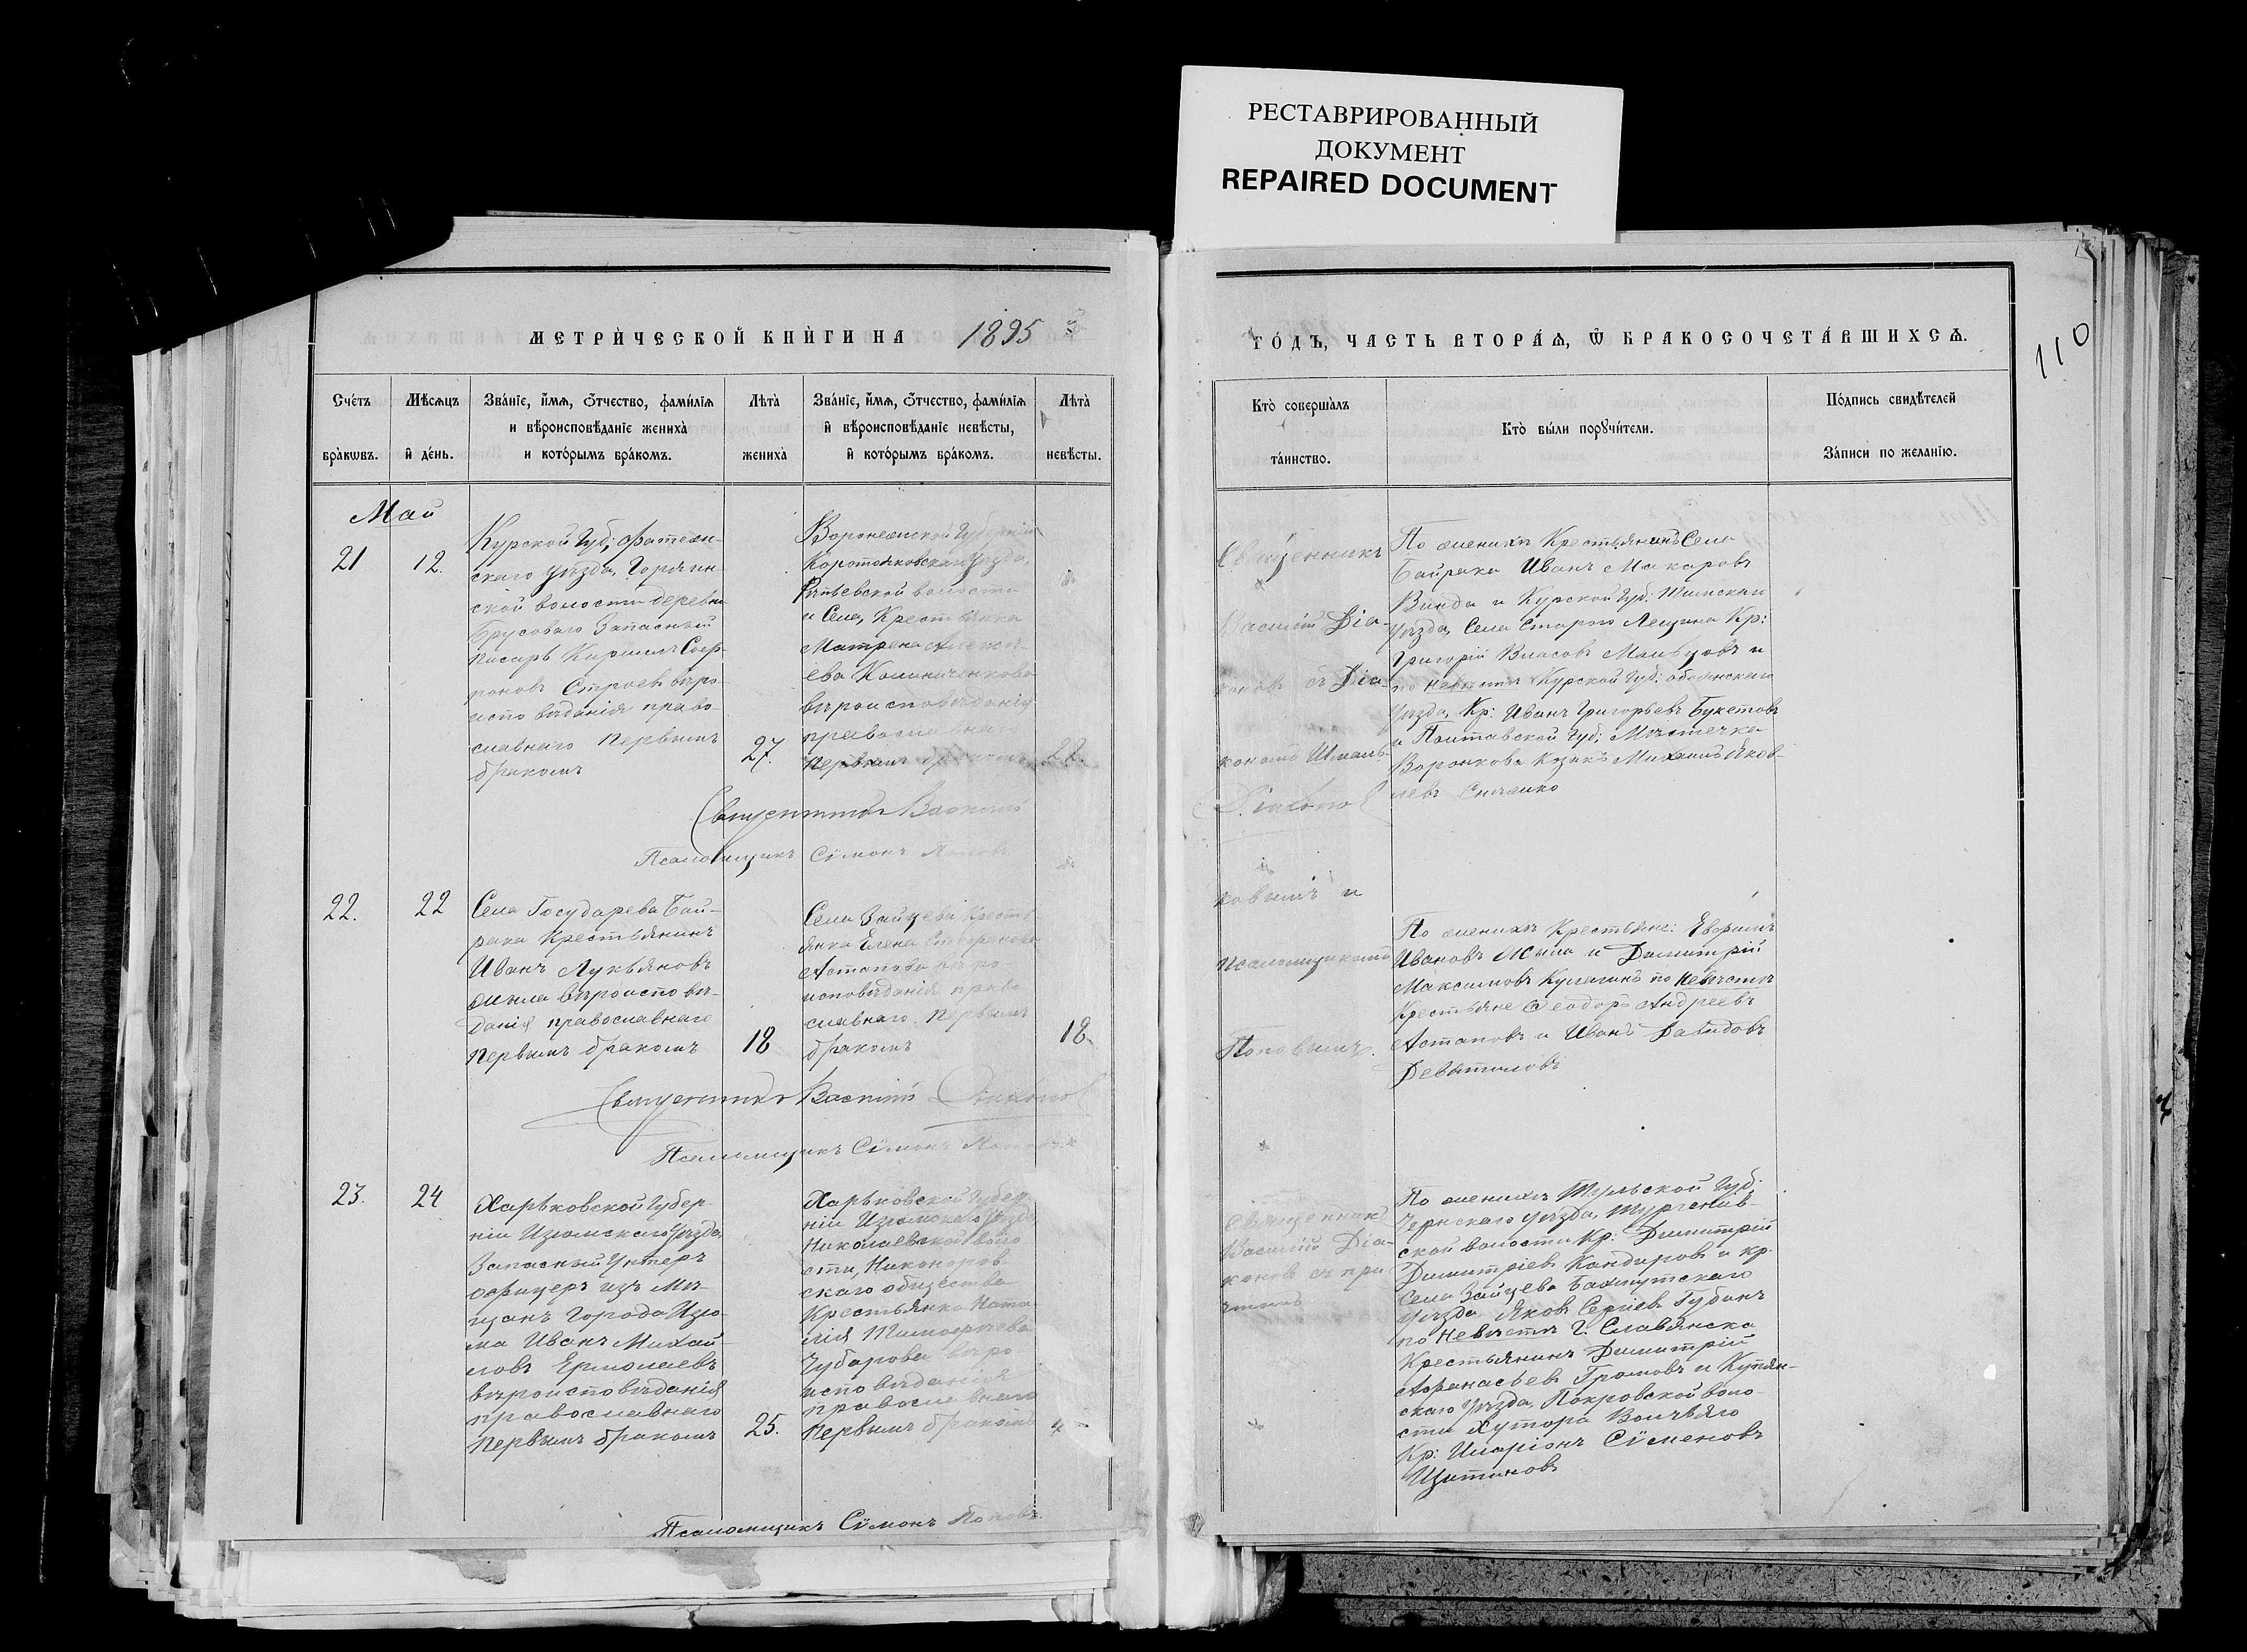 РЕСТАВРИРОВАННЫЙ
ДОКУМЕНТ
REPAIRED DOCUMENT
МЕТРИ́ЧЕСКОЙ КНИ́ГИ НА 1895
ГО́ДЪ, ЧАСТЬ ВТОРА́Ѧ, Ѽ БРАКОСОЧЕТА́ВШИХСѦ.
110
Сче́тъ
бра́кωвъ.
Мѣсѧцъ
и҆ де́нь.
Зва́нїе, и҆́мѧ, ѻ҆́тчество, фами́лїѧ
и вѣроисповѣданїе жениха̀
и кото́рымъ бра́комъ.
Лѣта̀
жениха̀
Зва́нїе, и҆́мѧ, ѻ҆́тчество, фами́лїѧ
и҆ вѣроисповѣданїе невѣсты,
и҆ кото́рымъ бра́комъ.
Лѣта̀
невѣсты.
Кто̀ соверша̀лъ
та́инство.
Кто̀ бы́ли порꙋчи́тели.
По́дпись свидѣтелей
За́писи по жела́нїю.
Май
21
12.
Курской Губ; Фатеж-
скаго Уѣзда,
ской волости деревни
Брусоваго Запасный
писарь Кирилъ Соф-
роновъ Строевъ вѣро-
исповѣданія право-
славнаго первымъ
бракомъ
27.
Воронежской Губерніи
Коротоякскаго Уѣзда,
Репьевской волости
и Села, Крестьянка
Матрена Алексѣ-
ева
вѣроисповѣданія
православнаго
первымъ бракомъ
22.
Священникъ Василій
Псаломщикъ Сѵмонъ Поповъ
Священникъ
Василій Діа-
коновъ съ Діа-
кономъ Шмаль-
ковымъ и
псаломщикомъ
Поповымъ.
По женихѣ Крестьянинъ Села
Байрака Иванъ Макаровъ
Винда и Курской Губ: Тимскаго
Уѣзда, Села Стараго Лещина Кр:
Григорій Власовъ Мальцовъ и
по невѣстѣ Курской Губ: Обоянскаго
Уѣзда, Кр: Иванъ Григорьевъ Букетовъ
и Полтавской Губ; Мѣстечка
Воронкова Козакъ Михаилъ Яков-
левъ
22.
22
Села Государева Бай-
рака Крестьянинъ
Иванъ Лукьяновъ
Жила вѣроисповѣ-
данія православнаго
первымъ бракомъ
18
Села Зайцева Кресть-
янка Елена Стефанова
Астапова вѣро-
исповѣданія право-
славнаго первымъ
бракомъ
18.
Священникъ Василій Діаконовъ
Псаломщикъ Сѵмонъ Поповъ
По женихѣ Крестьяне: Евфимъ
Ивановъ Жила и Димитрій
Максимовъ Кулагинъ по невѣстѣ
Крестьяне Ѳеодоръ Андреевъ
Астаповъ и Иванъ Давидовъ
Девятиловъ
23.
24
Харьковской Губер-
ніи Изюмскаго Уѣзда,
Запасный Унтеръ
офицеръ изъ Мѣ-
щанъ Города Изю-
ма Иванъ Михай-
ловъ Ермолаевъ
вѣроисповѣданія
православнаго
первымъ бракомъ
25.
Харьковской Губер-
ніи Изюмскаго Уѣзда
Николаевской воло-
сти, Никоноров-
скаго общества
Крестьянка Ната-
лія Тимофѣева
Чубарова вѣро-
исповѣданія
православнаго
первымъ бракомъ
Священникъ
Василій Діа-
коновъ съ при-
чтомъ
По женихѣ Тульской Губ.
Чернскаго Уѣзда, Тургенев-
ской волости Кр: Димитрій
Димитріевъ Кондыровъ и кр.
Села Зайцева Бахмутскаго
Уѣзда Яковъ Сергіевъ Губинъ
по невѣстѣ Г. Славянска
Крестьянинъ Димитрій
Афанасьевъ Громовъ и Купян-
скаго Уѣзда, Покровской воло-
сти Хутора Волчьяго
Кр: Иларіонъ Сѵменовъ
Псаломщикъ Сѵмонъ Поповъ.